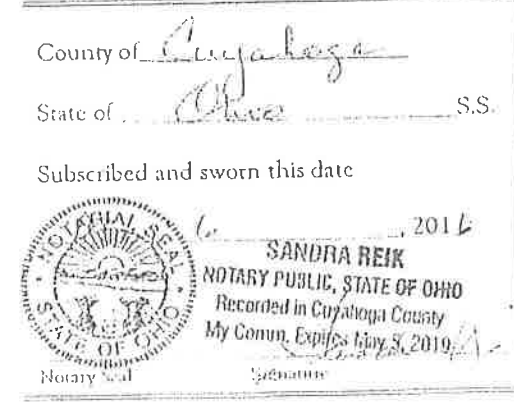 County of Cuyahoga
State of Ohio S.S.
Subscribed and sworn this date
6 , 2016
NOTARIAL SEAL
STATE OF OHIO
SANDRA REIK
NOTARY PUBLIC, STATE OF OHIO
Recorded in Cuyahoga County
My Comm. Expires May 8, 2019
Notary Seal Signature